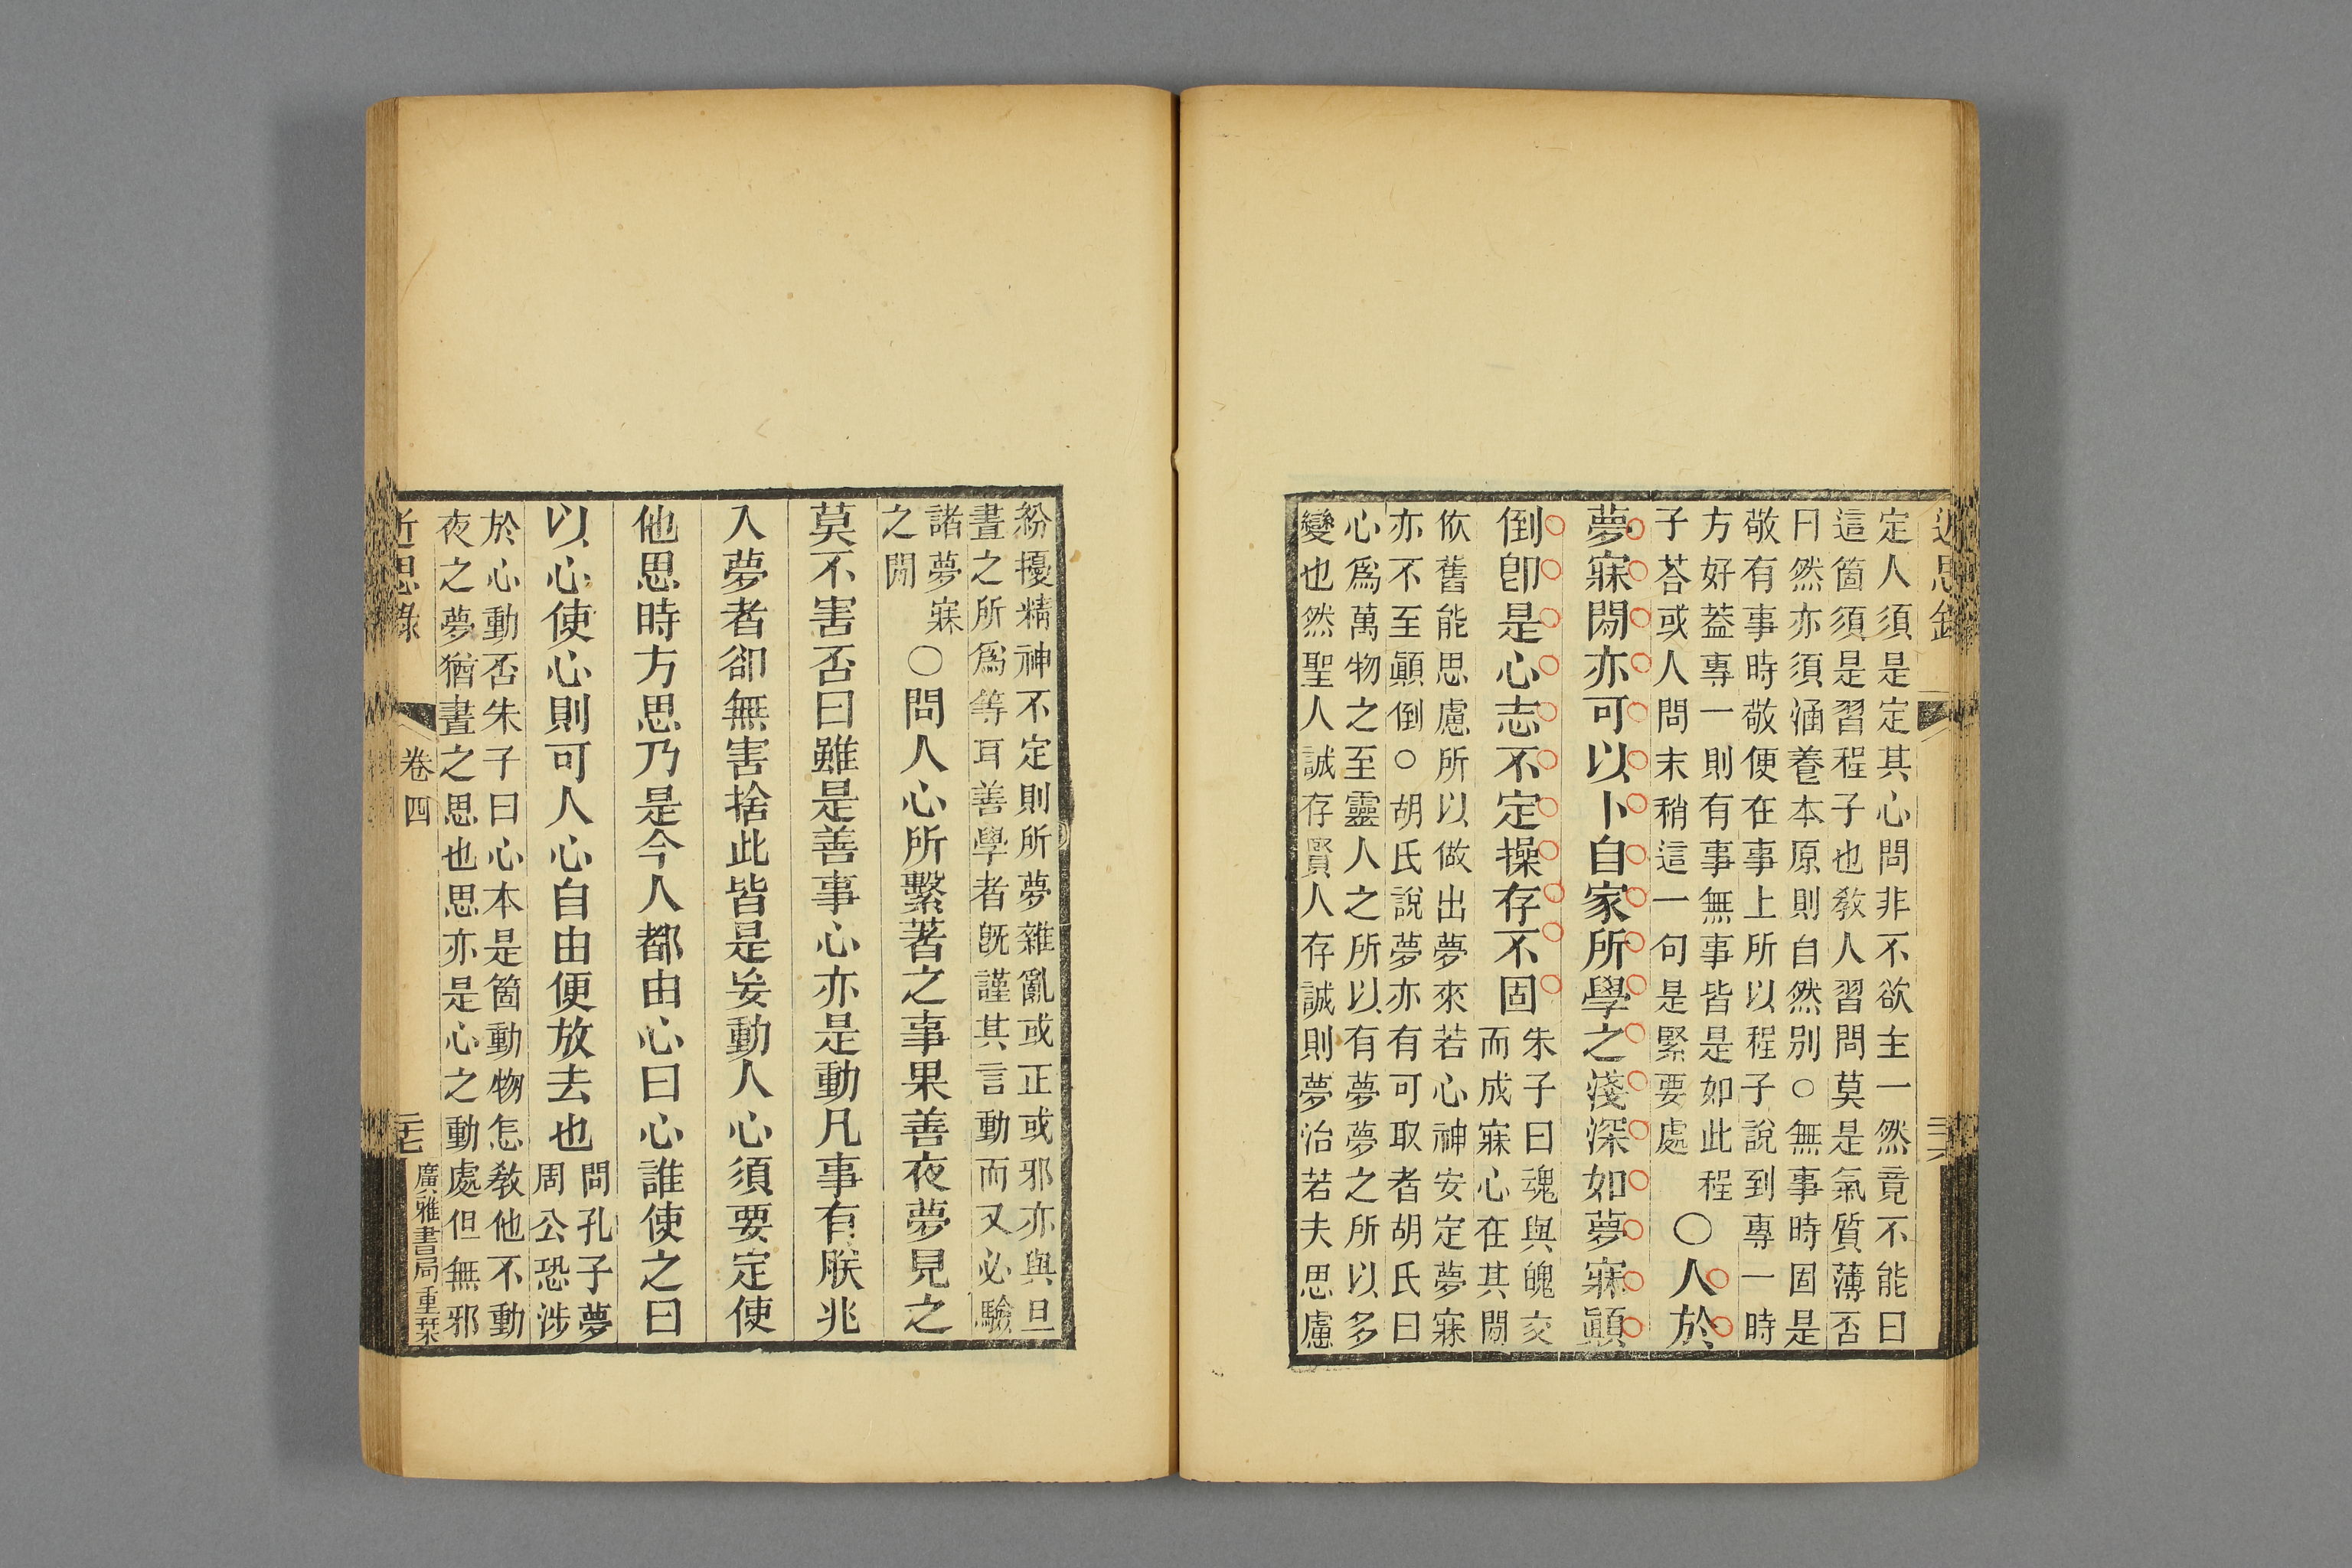 近思錄
定人須是定其心問非不欲主一然竟不能曰
這箇須是習程子也敎人習問莫是氣質薄否
曰然亦須涵養本原則自然別○無事時固是
敬有事時敬便在事上所以程子說到專一時
方好蓋專一則有事無事皆是如此程
子荅或人問末稍這一句是緊要處
○人於
夢寐閒亦可以卜自家所學之淺深如夢寐顚
倒卽是心志不定操存不固
朱子曰魂與魄交
而成寐心在其閒
依舊能思慮所以做出夢來若心神安定夢寐
亦不至顚倒○胡氏說夢亦有可取者胡氏曰
心爲萬物之至靈人之所以有夢夢之所以多
變也然聖人誠存賢人存誠則夢治若夫思慮
紛擾精神不定則所夢雜亂或正或邪亦與旦
晝之所爲等耳善學者旣謹其言動而又必驗
諸夢寐
之閒
○問人心所繫著之事果善夜夢見之
莫不害否曰雖是善事心亦是動凡事有朕兆
入夢者卻無害捨此皆是妄動人心須要定使
他思時方思乃是今人都由心曰心誰使之曰
以心使心則可人心自由便放去也
問孔子夢
周公恐涉
於心動否朱子曰心本是箇動物怎敎他不動
夜之夢猶晝之思也思亦是心之動處但無邪
近思錄
卷四
二十七
廣雅書局重栞